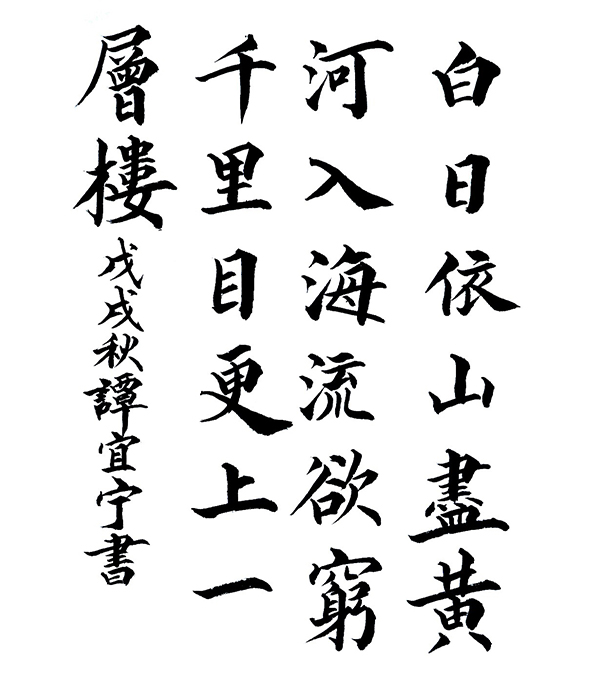 白日依山盡黄
河入海流欲窮
千里目更上一
層樓戊戌秋譚宜宁書